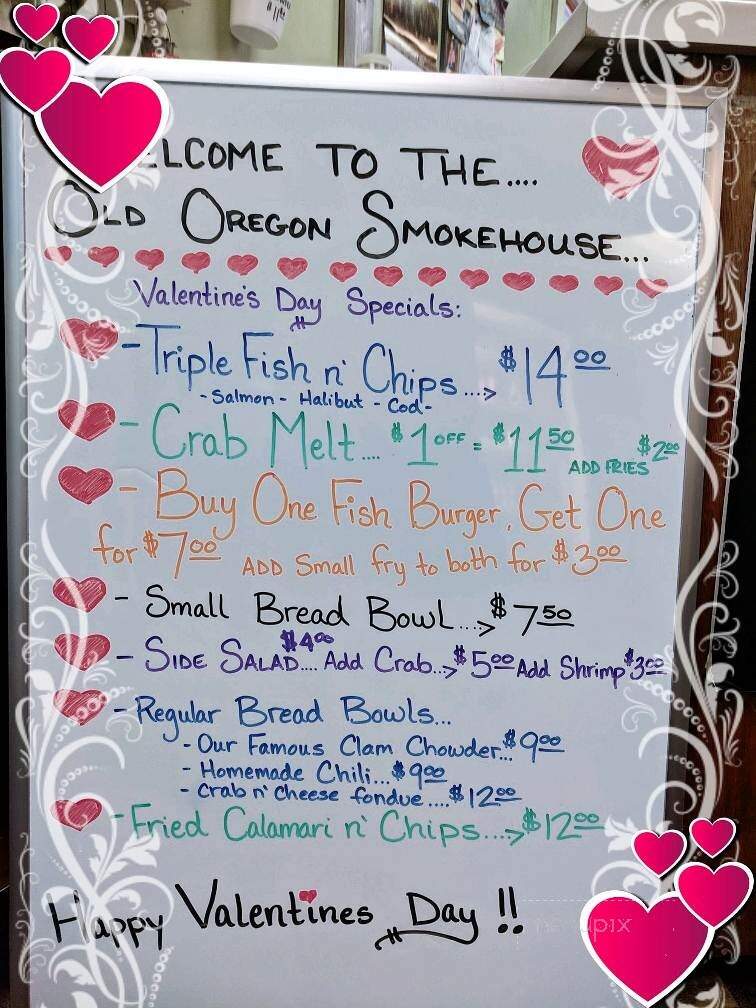 ELCOME TO THE....
OLD OREGON SMOKEHOUSE...
Valentine's Day Specials:
- Triple Fish n' Chips...> $14.00
- Salmon - Halibut - Cod -
- Crab Melt.... $1 OFF = $11.50 ADD FRIES $2.00
- Buy One Fish Burger, Get One
for $7.00 ADD Small fry to both for $3.00
- Small Bread Bowl...> $7.50
- SIDE SALAD.... $4.00 Add Crab...> $5.00 Add Shrimp $3.00
- Regular Bread Bowls...
- Our Famous Clam Chowder... $9.00
- Homemade Chili... $9.00
- Crab n' Cheese fondue.... $12.00
- Fried Calamari n' Chips...> $12.00
Happy Valentines Day !!